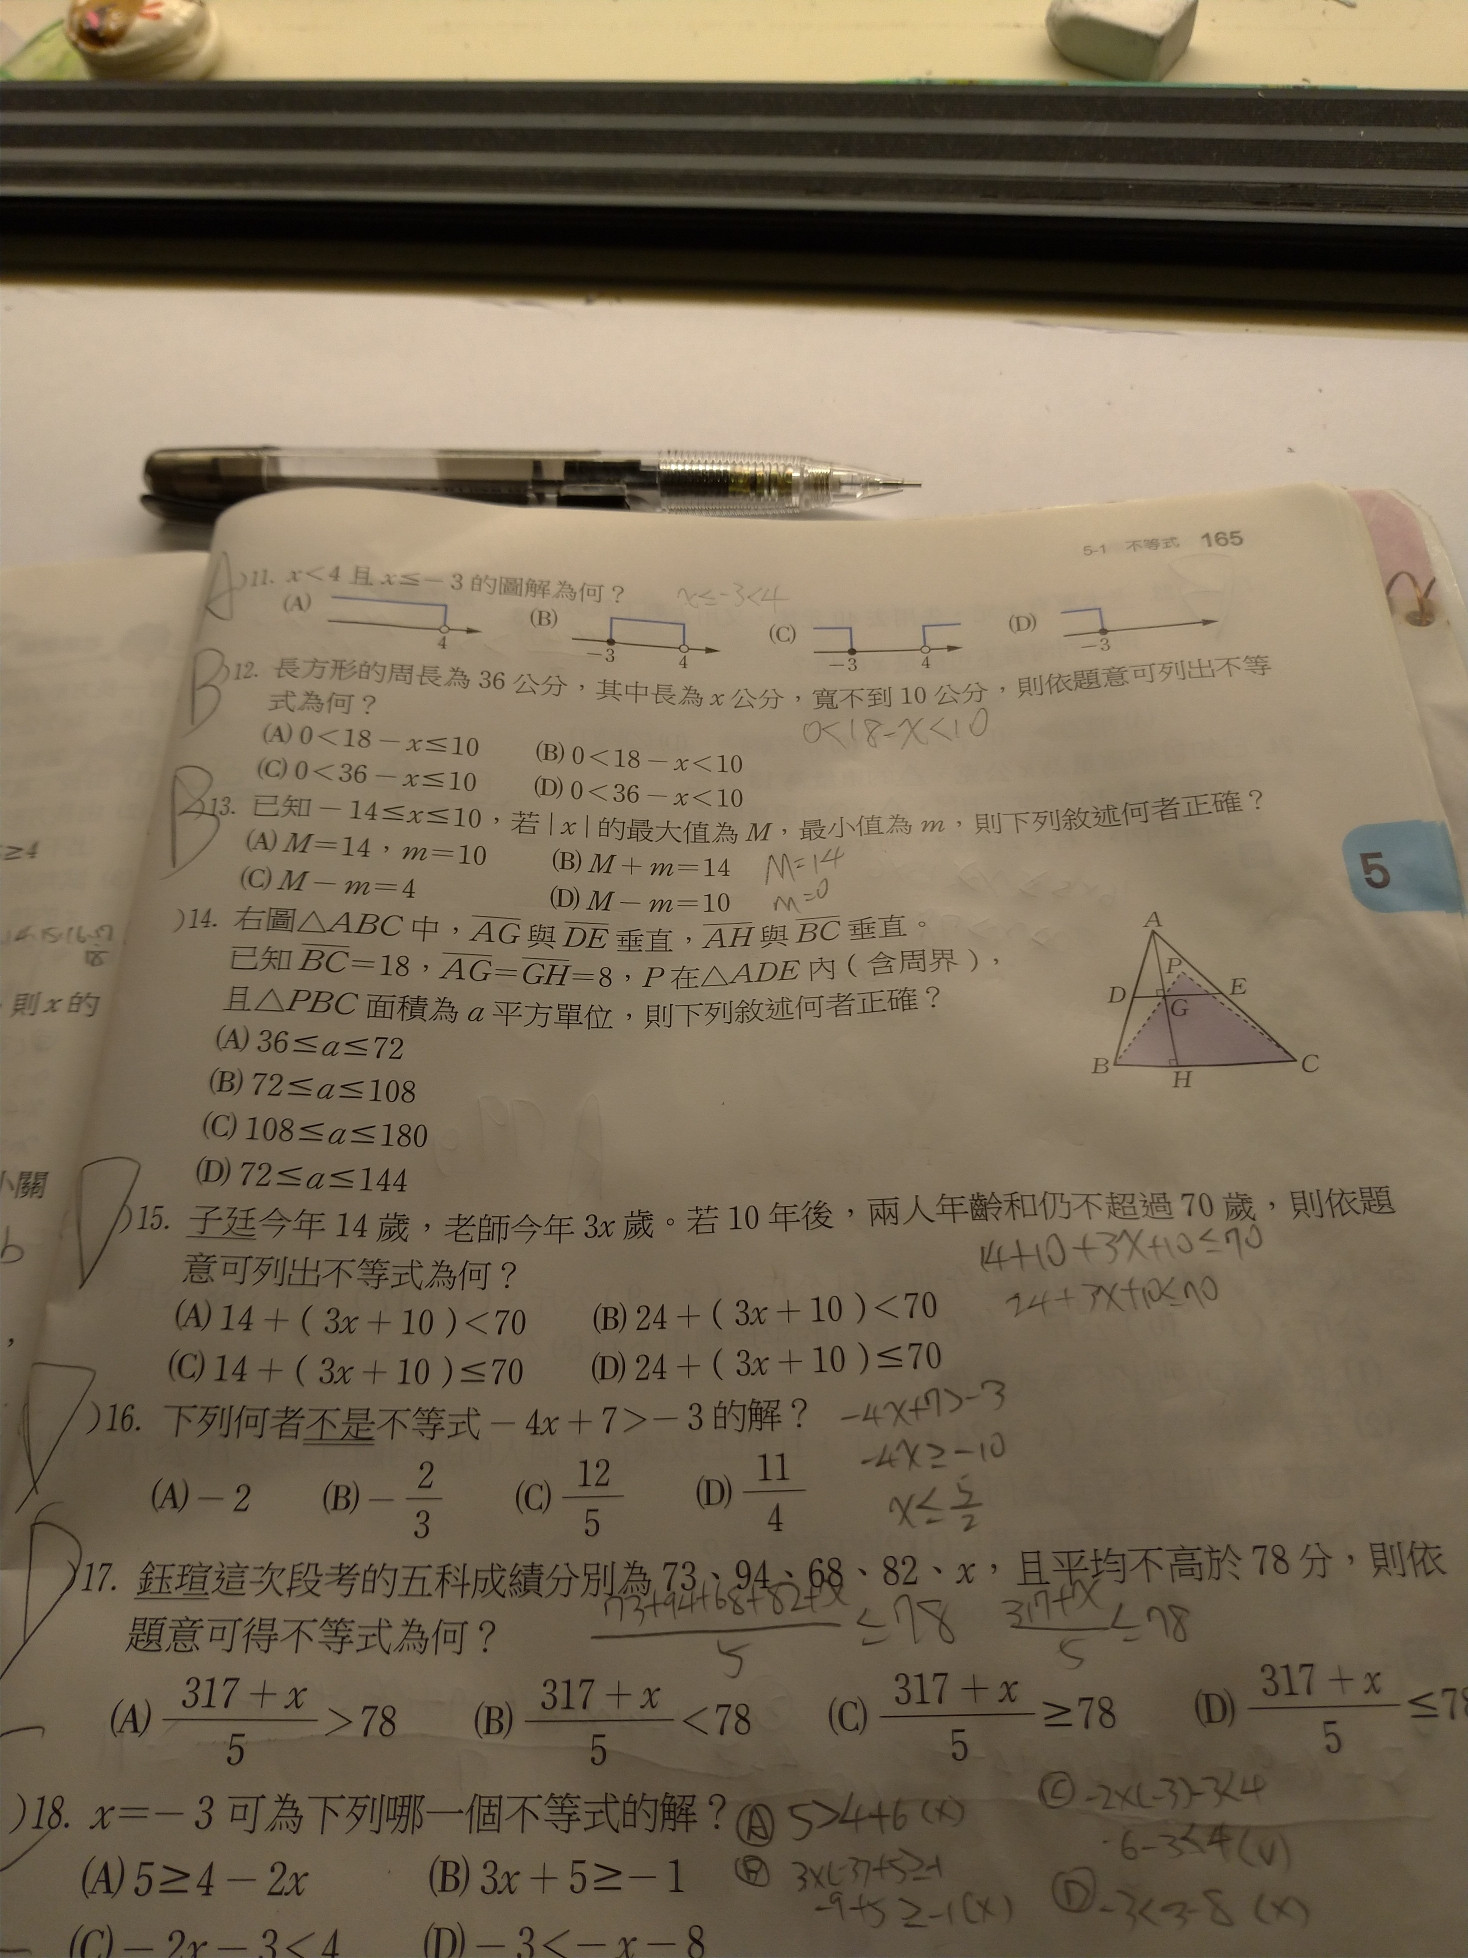 5-1 不等式 165
A )11. x<4 且 x≤-3 的圖解為何？ x≤-3<4
(A) 4 (B) -3 4 (C) -3 4 (D) -3
B )12. 長方形的周長為 36 公分，其中長為 x 公分，寬不到 10 公分，則依題意可列出不等
式為何？ 0<18-x<10
(A) 0<18-x≤10 (B) 0<18-x<10
(C) 0<36-x≤10 (D) 0<36-x<10
B )13. 已知-14≤x≤10，若|x|的最大值為 M，最小值為 m，則下列敘述何者正確？
(A) M=14，m=10 (B) M+m=14 M=14
(C) M-m=4 (D) M-m=10 m=0
5
)14. 右圖△ABC 中，AG與DE垂直，AH與BC垂直。
已知BC=18，AG=GH=8，P 在△ADE 內（含周界），
且△PBC 面積為 a 平方單位，則下列敘述何者正確？
(A) 36≤a≤72
(B) 72≤a≤108
(C) 108≤a≤180
(D) 72≤a≤144
A
P
D G E
B H C
D )15. 子廷今年 14 歲，老師今年 3x 歲。若 10 年後，兩人年齡和仍不超過 70 歲，則依題
意可列出不等式為何？ 14+10+3x+10≤70
24+3x+10≤70
(A) 14+（3x+10）<70 (B) 24+（3x+10）<70
(C) 14+（3x+10）≤70 (D) 24+（3x+10）≤70
D )16. 下列何者不是不等式-4x+7>-3 的解？ -4x+7>-3
-4x≥-10
x≤5/2
(A) -2 (B) -2/3 (C) 12/5 (D) 11/4
D )17. 鈺瑄這次段考的五科成績分別為 73、94、68、82、x，且平均不高於 78 分，則依
題意可得不等式為何？ 73+94+68+82+x/5 ≤78 317+x/5 ≤78
(A) 317+x/5 >78 (B) 317+x/5 <78 (C) 317+x/5 ≥78 (D) 317+x/5 ≤78
)18. x=-3 可為下列哪一個不等式的解？ Ⓐ 5>4+6 (x) Ⓒ -2x(-3)-3<4
6-3<4 (v)
(A) 5≥4-2x (B) 3x+5≥-1 Ⓑ 3x(-3)+5≥-1
-9+5≥-1 (x) Ⓓ -3<3-8 (x)
(C) -2x-3<4 (D) -3<-x-8
≥4
則 x 的
小關
b
，